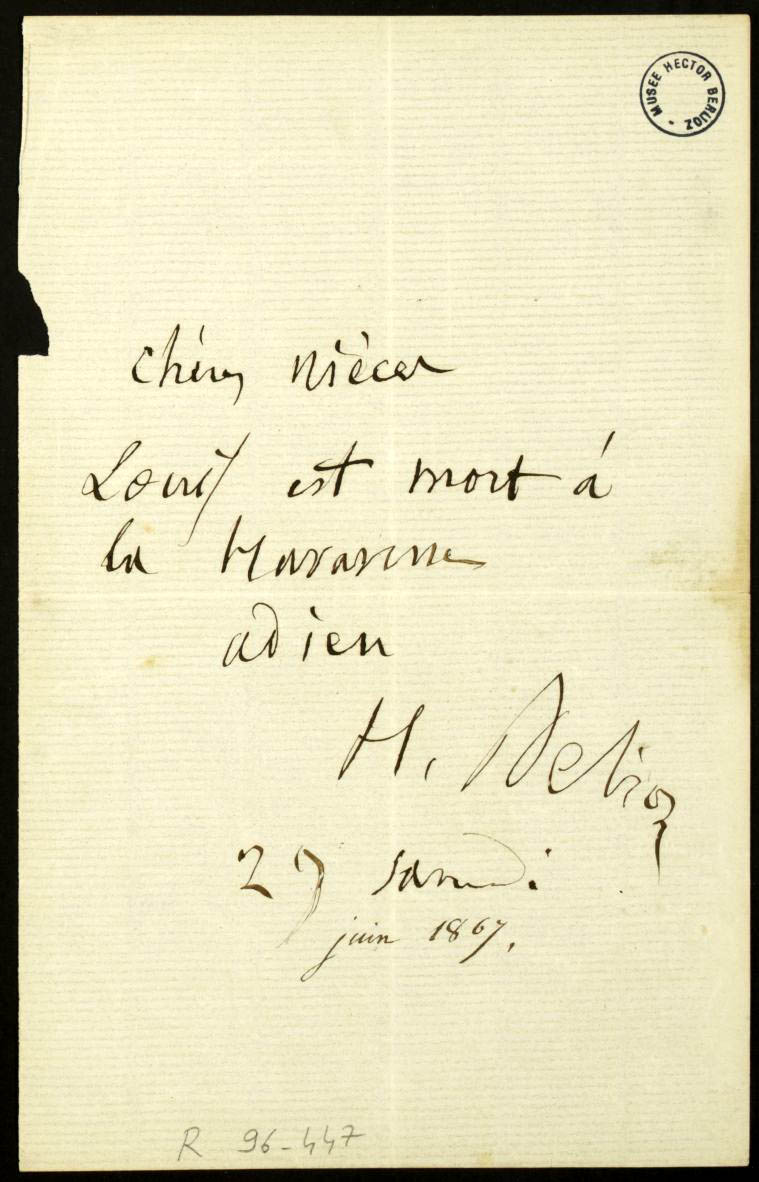 MUSEE HECTOR BERLIOZ -
Chères nièces
Louis est mort à
la Havanne
adieu
H. Berlioz
29 samedi
juin 1867.
R 96-447